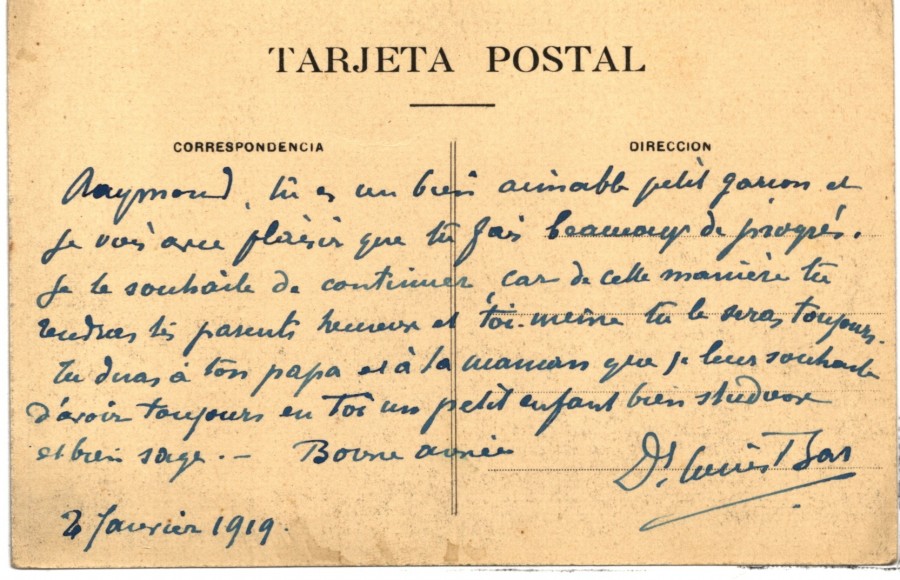 TARJETA POSTAL
CORRESPONDENCIA
DIRECCION
Raymond, tu es un bien aimable petit garçon et
je vois avec plaisir que tu fais beaucoup de progrès.
Je te souhaite de continuer, car de cette manière tu
rendras tes parents heureux et toi-même tu le seras toujours.
Tu diras à ton papa et à ta maman que je leur souhaite
d'avoir toujours en toi un petit enfant bien studieux
et bien sage. - Bonne année
Dr. Louis
2 Janvier 1919.